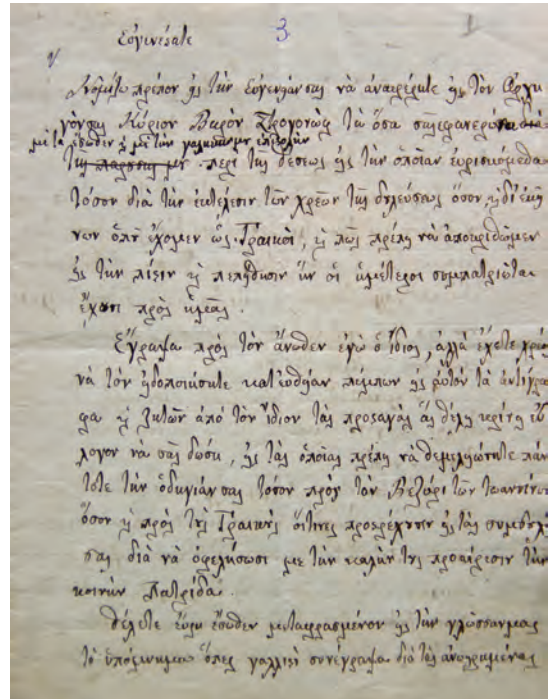 Εὐγενέστατε
3
Νομίζω πρέπον εἰς τὴν Εὐγενίαν σας νὰ ἀναφέρητε εἰς τὸν
Κύριον Βαρὸν Στρογονὼφ τὰ ὅσα σᾶς ἐφανέρωσα
μὲ τὰ ἔσωθεν καὶ μὲ τὴν
περὶ τῆς θέσεως εἰς τὴν ὁποίαν εὑρισκόμεθα
τόσον διὰ τὴν ἐκτέλεσιν τῶν χρεῶν τῆς δουλεύσεως ὅσον καὶ δι' ἐκεί
νων ὁποῦ ἔχομεν ὡς Γραικοὶ, καὶ πῶς πρέπει νὰ ἀποκριθῶμεν
εἰς τὴν πίστιν καὶ πεποίθησιν ἣν οἱ ἡμέτεροι συμπατριῶται
ἔχουσι πρὸς ἡμᾶς.
Ἔγραψα πρὸς τὸν ἄνωθεν ἐγὼ ὁ ἴδιος, ἀλλὰ ἔχετε χρέος
νὰ τὸν εἰδοποιήσητε κατευθείαν πέμπων εἰς αὐτὸν τὰ ἀντίγρα
φα καὶ ζητῶν ἀπὸ τὸν ἴδιον τὰς προσταγὰς ἃς θέλει κρίνῃ εὔ
λογον νὰ σᾶς δώσῃ, εἰς τὰς ὁποίας πρέπει νὰ θεμελιώσητε πάν
τοτε τὴν ὁδηγίαν σας τόσον πρὸς τὸν Βεζύρι τῶν Ἰωαννίνων
ὅσον καὶ πρὸς τοὺς Γραικοὺς οἵτινες προστρέχουσιν εἰς τὰς συμβουλάς
σας διὰ νὰ ὠφελήσωσι μὲ τὴν καλήν τους προαίρεσιν τὴν
κοινὴν Πατρίδα.
Θέλετε εὕρῃ ἔσωθεν μεταφρασμένον εἰς τὴν γλῶσσαν μας
τὸ ὑπόμνημα ὅπερ γαλλιστὶ συνέγραψα διὰ τὰς